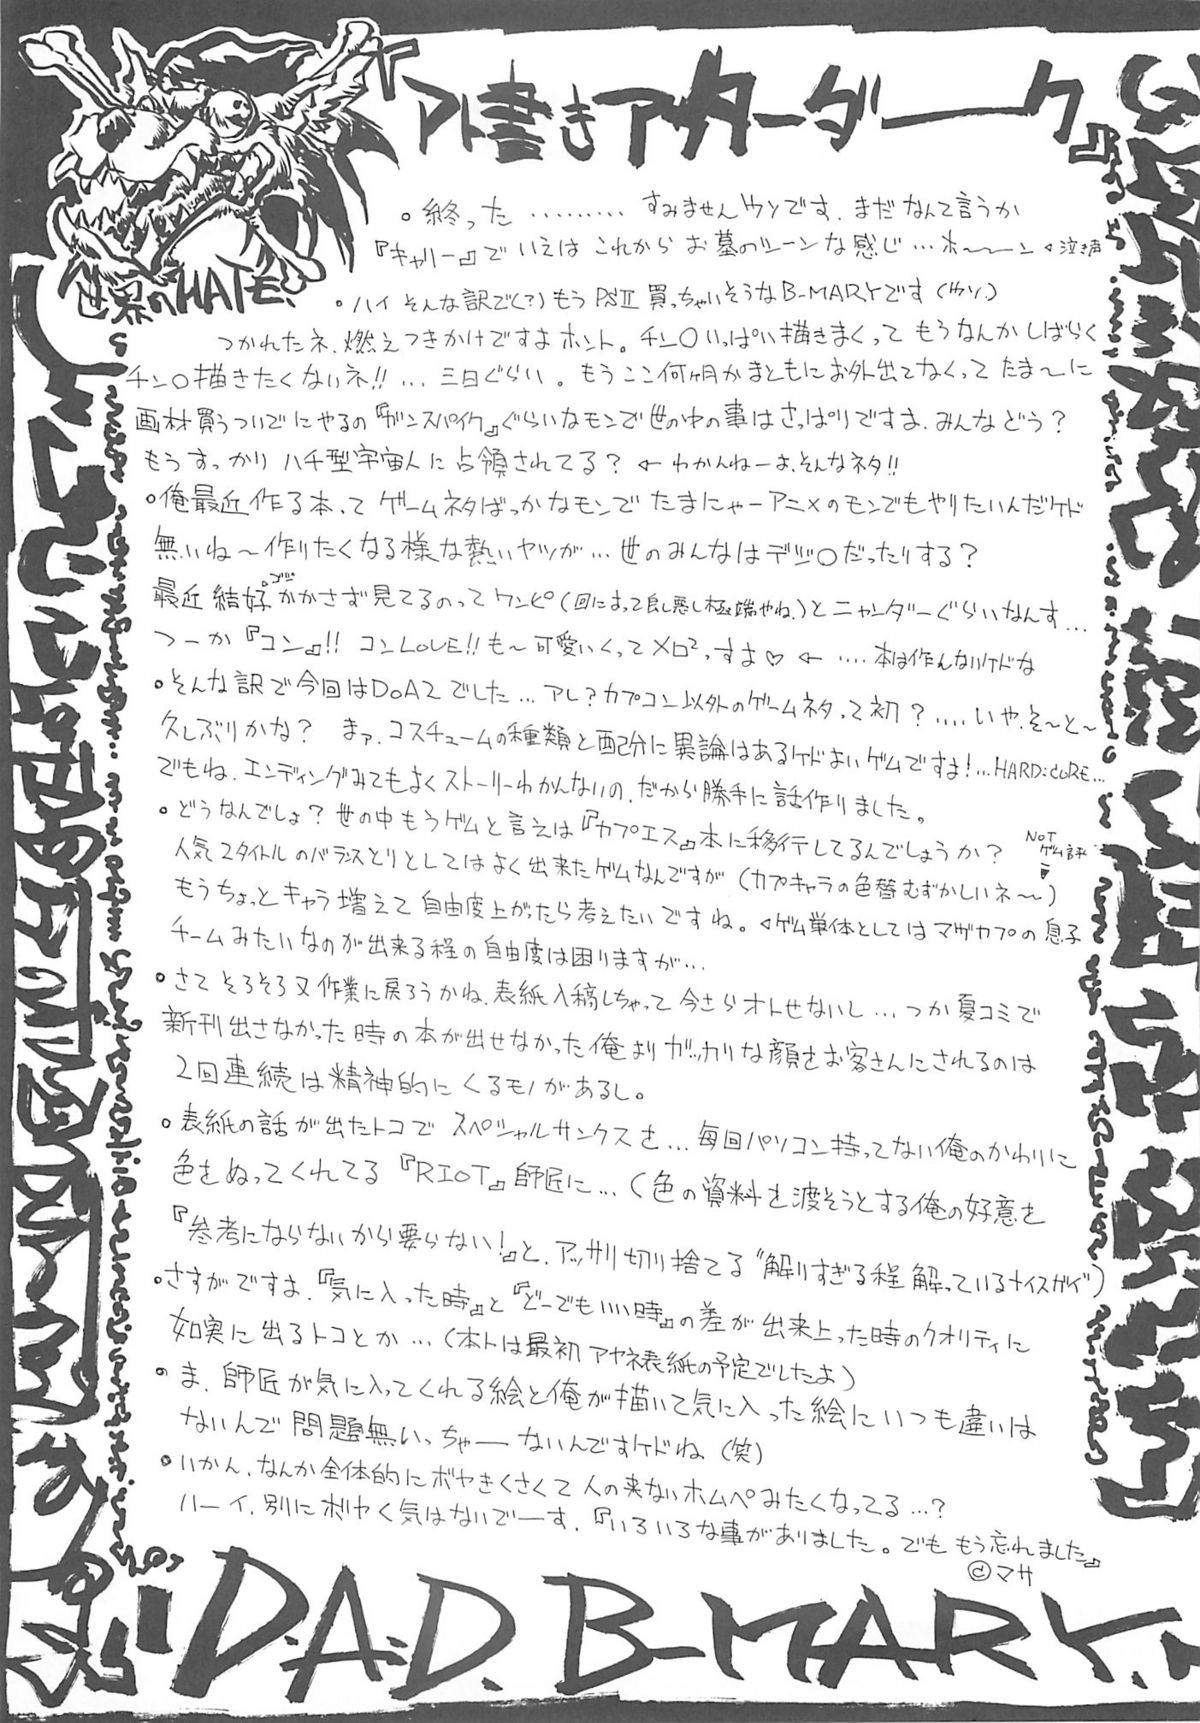 『アト書きアフターダーク』
世界のHATE.
。終った ......... すみませんウソです. まだなんて言うか
『キャリー』でいえば これから お墓のシーンな感じ...ホ〜〜ン ◁泣き声
・ハイ そんな訳で(?)もう PSⅡ 買っちゃいそうなB-MARYです(ウソ)
つかれたネ. 燃えつきかけですよホント。チン〇いっぱい描きまくって もうなんかしばらく
チン〇描きたくないネ!! ... 三日ぐらい。もうここ何ヶ月かまともにお外出てなくって たま〜に
画材買うついでにやるの『ガンスパイク』ぐらいなモンで世の中の事はさっぱりですよ. みんなどう?
もうすっかり ハチ型宇宙人に占領されてる? ← わかんねーよ. そんなネタ!!
。俺最近作る本って ゲームネタばっかなモンで たまにゃーアニメのモンでもやりたいんだケド
無いね〜作りたくなる様な熱いヤツが... 世のみんなはデジ〇だったりする?
最近結構かかさず見てるのって ワンピ(回によって良し悪し極端やね.)とニャンダーぐらいなんす...
つーか『コン』!! コンLOVE!! も〜可愛いくってメロ²っすよ♡ ← .... 本は作んないケドな
。そんな訳で今回はDOA2でした... アレ?カプコン以外のゲームネタって初? .... いや. そ〜と〜
久しぶりかな? まァ. コスチュームの種類と配分に異論はあるケドよいゲムですよ! ...HARD:CORE...
でもね. エンディングみてもよくストーリーわかんないの. だから勝手に話作りました。
。どうなんでしょ? 世の中もうゲムと言えば『カプエス』本に移行してるんでしょうか?
NOT ゲム評
人気2タイトルのバランスとりとしてはよく出来たゲムなんですが(カプキャラの色替むずかしいネ〜〜)
もうちょっとキャラ増えて自由度上がったら考えたいですね。 ◁ゲム単体としてはマヴカプの息子
チームみたいなのが出来る程の自由度は困りますが...
。さてそろそろ又作業に戻ろうかね. 表紙入稿しちゃって今さらオトせないし... つか夏コミで
新刊出さなかった時の本が出せなかった俺よりガッカリな顔をお客さんにされるのは
2回連続は精神的にくるモノがあるし。
。表紙の話が出たトコで スペシャルサンクスを... 毎回パソコン持ってない俺のかわりに
色をぬってくれてる『RIOT』師匠に...(色の資料を渡そうとする俺の好意を
『参考にならないから要らない!』と. アッサリ切り捨てる“解りすぎる程解っているナイスガイ”)
。さすがですよ.『気に入った時』と『どーでもいい時』の差が出来上った時のクオリティに
如実に出るトコとか...(本トは最初アヤネ表紙の予定でしたよ)
。ま. 師匠が気に入ってくれる絵と俺が描いて気に入った絵にいつも違いは
ないんで問題無いっちゃーないんですケドね(笑)
。いかん. なんか全体的にボヤきくさくて人の来ないホムペみたくなってる...?
ハーイ. 別にボヤく気はないでーす.『いろいろな事がありました。でも もう忘れました』
©マサ
D.A.D. B-MARY.